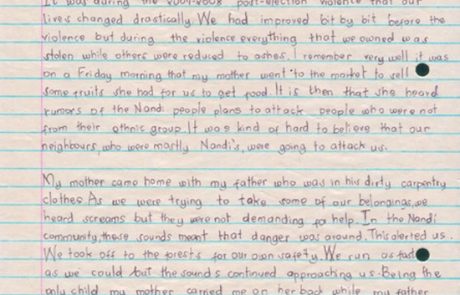 It was during the 2007-2008 post-election violence that our
lives changed drastically. We had improved bit by bit before the
violence but during the violence everything that we owned was
stolen while others were reduced to ashes. I remember very well it was
on a Friday morning that my mother went to the market to sell
some fruits she had for us to get food. It is then that she heard
rumors of the Nandi people plans to attack people who were not
from their ethnic group. It was kind of hard to believe that our
neighbours, who were mostly Nandi's, were going to attack us.
My mother came home with my father who was in his dirty carpentry
clothes. As we were trying to take some of our belongings, we
heard screams but they were not demanding for help. In the Nandi
community, these sounds meant that danger was around. This alerted us.
We took off to the forests for our own safety. We run as fast
as we could but the sounds continued approaching us. Being the
only child my mother carried me on her back while my father